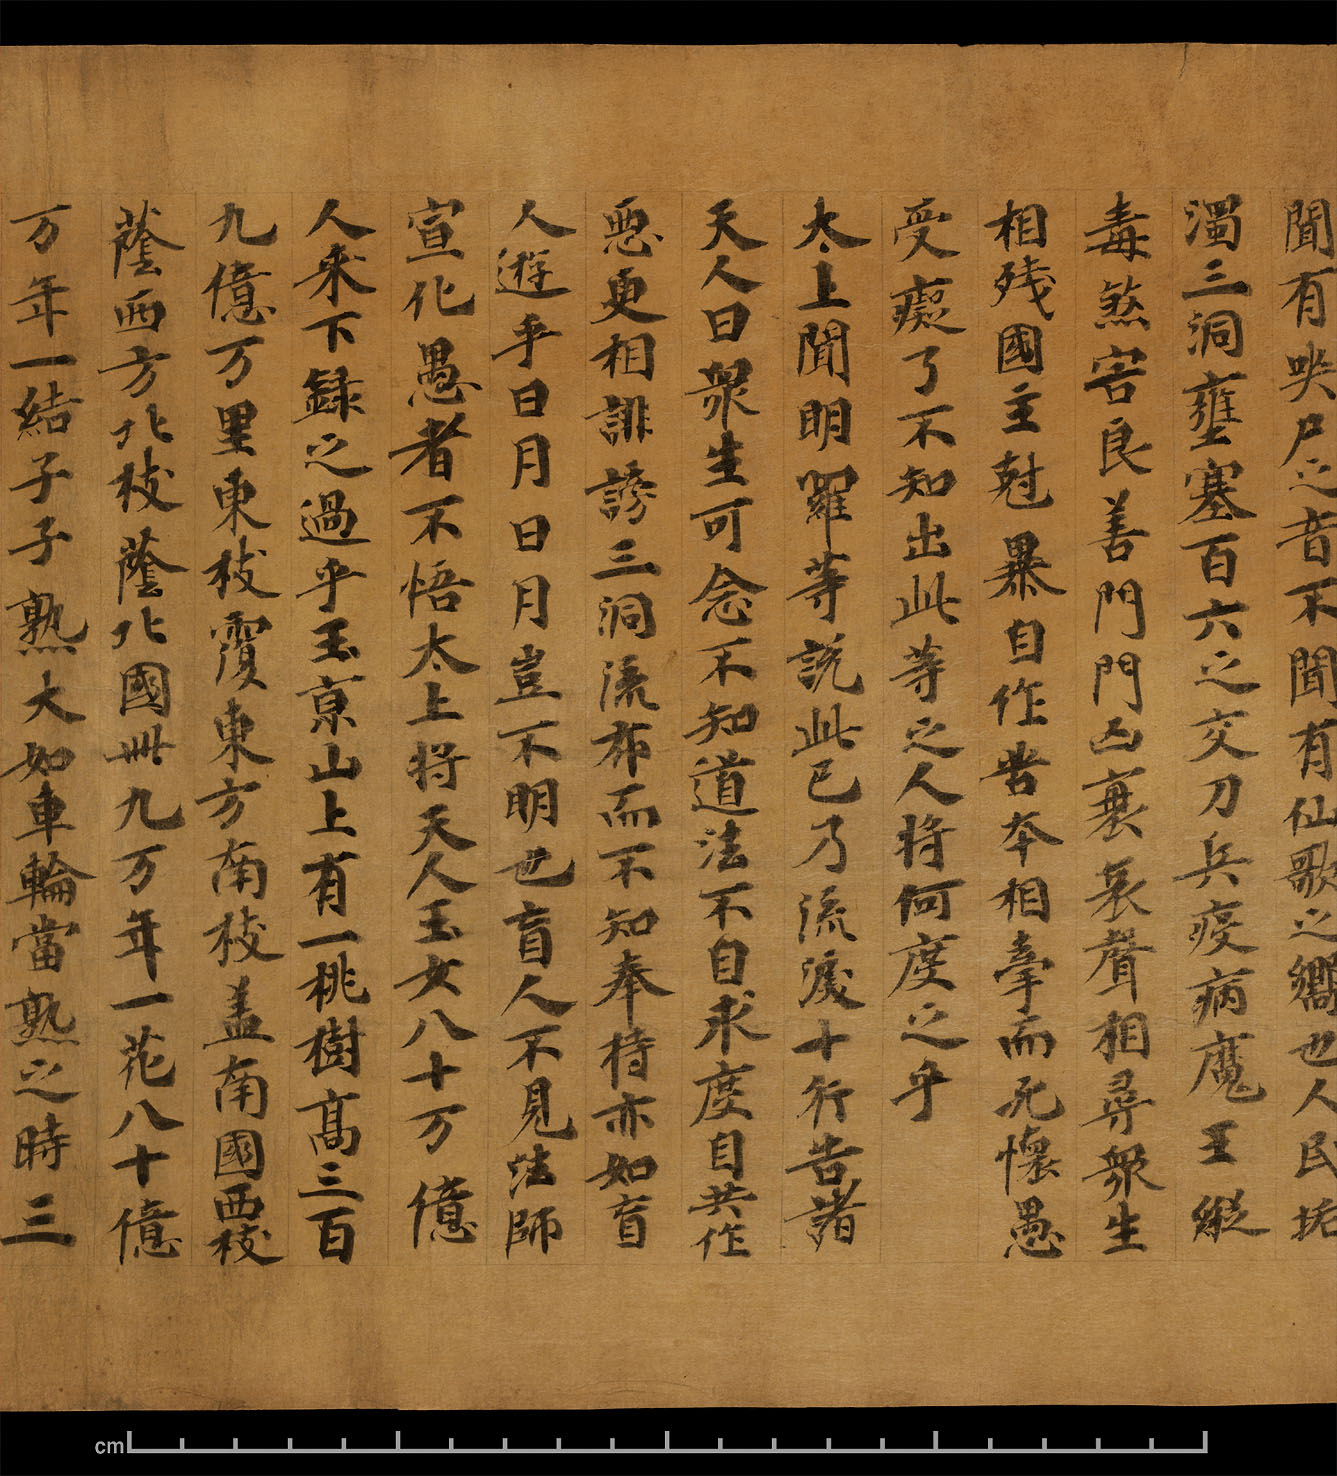 聞有哭尸之音不聞有仙歌之嚮也人民垢
濁三洞壅塞百六之交刀兵疫病魔王縱
毒煞害良善門門凶喪哀聲相尋衆生
相残國主尅暴自作咎夲相牽而死懷愚
受癡了不知出此等之人将何度之乎
太上聞明羅等說此已乃流淚十行告諸
天人曰衆生可念不知道法不自求度自共作
惡更相誹謗三洞流布而不知奉持亦如盲
人遊乎日月日月豈不明也盲人不見法師
宣化愚者不悟太上将天人玉女八十万億
人来下録之過乎玉京山上有一桃樹髙三百
九億万里東枝覆東方南枝盖南國西枝
蔭西方北枝蔭北國卌九万年一花八十億
万年一結子子熟大如車輪當熟之時三